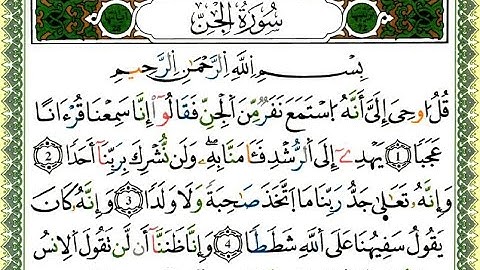 سُورَةُ الْجِنِّ
بِسْمِ اللَّهِ الرَّحْمَٰنِ الرَّحِيمِ
قُلْ أُوحِيَ إِلَيَّ أَنَّهُ اسْتَمَعَ نَفَرٌ مِّنَ الْجِنِّ فَقَالُوٓا إِنَّا سَمِعْنَا قُرْءَانًا
عَجَبًا ① يَهْدِىٓ إِلَى الرُّشْدِ فَـَٔامَنَّا بِهِۦ وَلَن نُّشْرِكَ بِرَبِّنَآ أَحَدًا ②
وَإِنَّهُۥ تَعَالَىٰ جَدُّ رَبِّنَا مَا اتَّخَذَ صَاحِبَةً وَلَا وَلَدًا ③ وَإِنَّهُۥ كَانَ
يَقُولُ سَفِيهُنَا عَلَى اللَّهِ شَطَطًا ④ وَإِنَّا ظَنَنَّآ أَن لَّن تَقُولَ الْإِنسُ